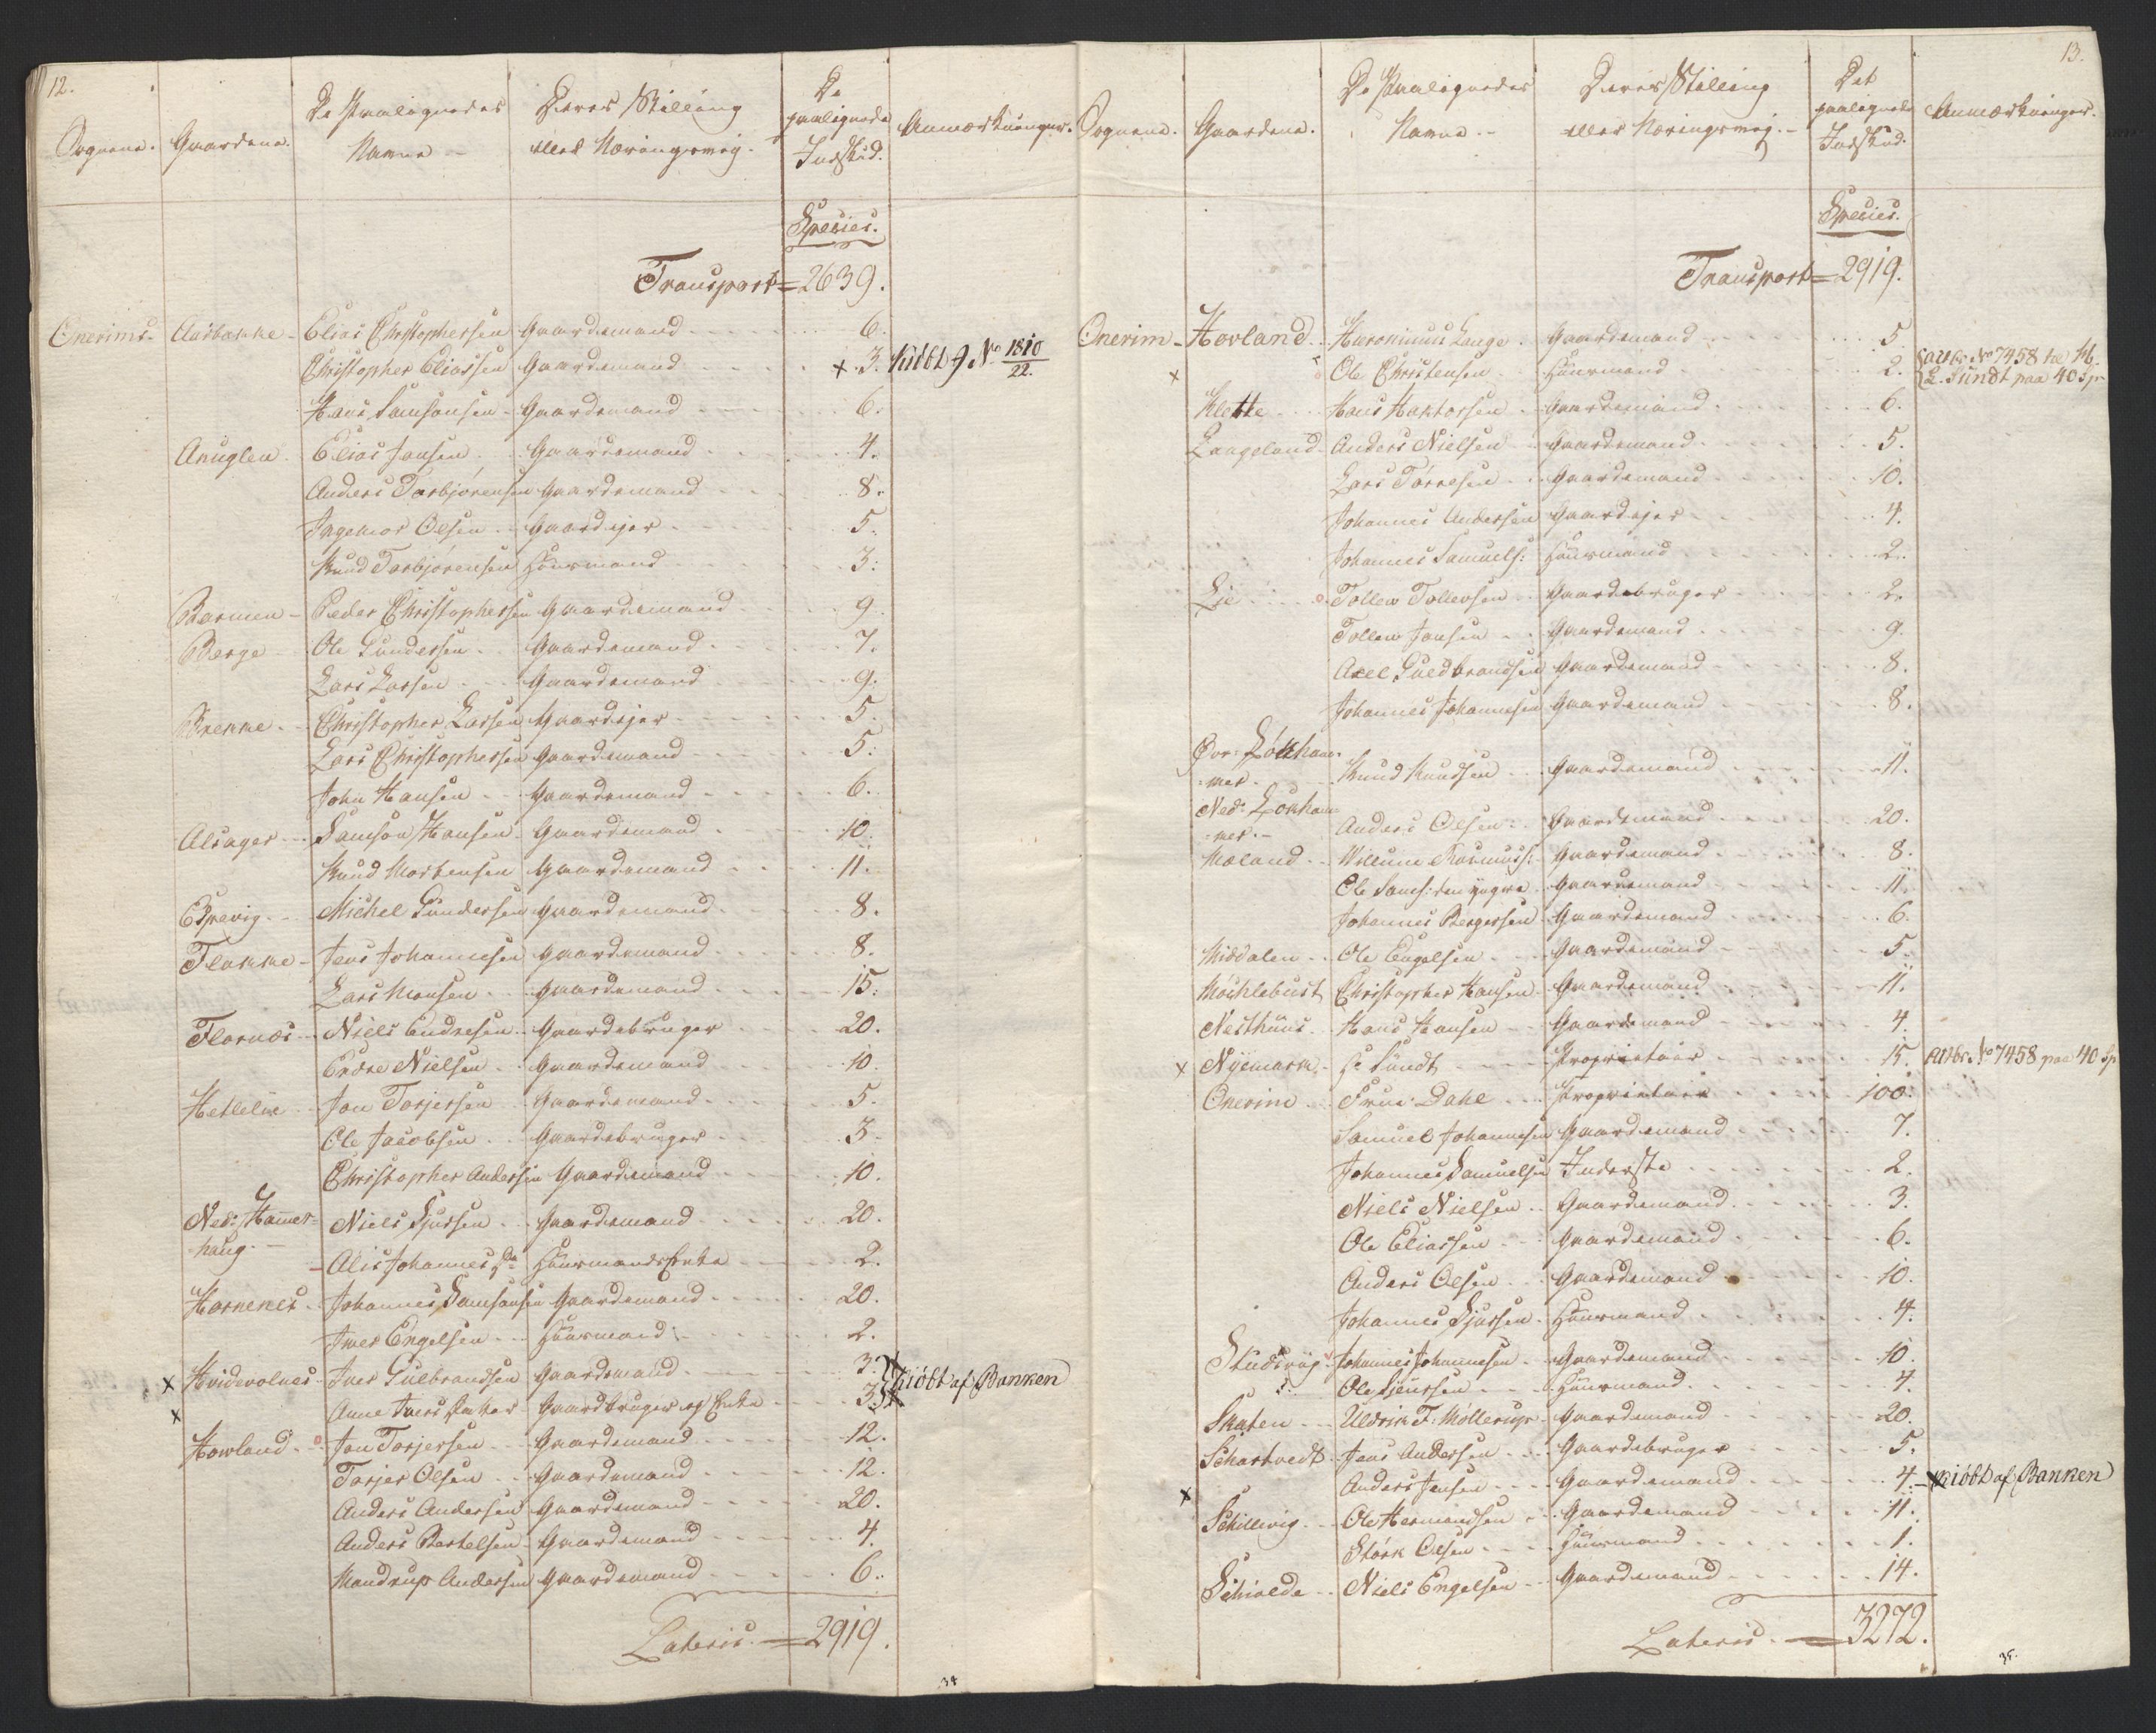 12.
Sognene. Gaardene. De Paalignedes Navne - Deres Stilling eller Næringsvej. De paalignede Indskud. Anmærkninger.
Species.
Transport = 2639.
Onerims- Aarbakke - Elias Christophersen Gaardemand 6.
Christopher Eliassen Gaardemand x 3. Kiøbt No 1810/22.
Hans Samsonsen Gaardemand 6.
Anuglen Elias Jansen Gaardemand 4.
Anders Torbjørensen Gaardemand 8.
Ingemor Olsen Gaardejer 5.
Knud Torbjørensen Huusmand 3.
Barmen - Peder Christophersen Gaardemand 9.
Berge Ole Gundersen Gaardemand 7.
Lars Larsen Gaardemand 9.
Brekke Christopher Larsen Gaardejer 5.
Lars Christophersen Gaardemand 5.
John Hansen Gaardemand 6.
Alsager Samson Hansen Gaardemand 10.
Knud Mortensen Gaardemand 11.
Espevig Michel Gundersen Gaardemand 8.
Flakke - Jens Johannesen Gaardemand 8.
Lars Monsen Gaardemand 15.
Flornæs Niels Endresen Gaardebruger 20.
Endre Nielsen Gaardemand 10.
Hetlelie Jon Torjersen Gaardemand 5.
Ole Jacobsen Gaardebruger 3.
Christopher Andersen Gaardemand 10.
Ned: Hammer= Niels Sjursen Gaardemand 20.
=haug. Alis Johannes Dr Huusmands Enke 2.
Hornenes Johannes Samsonsen Gaardemand 20.
Iver Engelsen Huusmand 2.
x Hvidevolnes Iver Gulbrandsen Gaardemand 3. Kiøbt af Banken
x Anne Ivers Gaardbruger og Enke 3.
Howland Jon Torjersen Gaardemand 12.
Torjer Olsen Gaardemand 12.
Anders Andersen Gaardemand 20.
Anders Bertelsen Gaardemand 4.
Mandrup Andersen Gaardemand 6.
Lateris = 2919.
34
13.
Sognene. Gaardene. De Paalignedes Navne - Deres Stilling eller Næringsvej. - Det paalignede Indskud. Anmærkninger.
Species.
Transport = 2919.
Onerim - Hovland Hieronimus Lange Gaardemand 5.
x Ole Christensen Huusmand 2. No 7458 L. Sundt paa 40 Sp
Klette Hans Haktorsen Gaardemand 6.
Laageland Anders Nielsen Gaardemand 5.
Lars Tørresen Gaardemand 10.
Johannes Andersen Gaardejer 4.
Johannes Samuels: Huusmand 2.
Lie Tollew Tollevsen Gaardebruger 2.
Tollew Jansen Gaardemand 9.
Axel Guldbrandsen Gaardemand 8.
Johannes Johannesen Gaardemand 8.
Øvr: Løkham=
=mer. Knud Knudsen Gaardemand 11.
Ned: Løkham=
=mer. - Anders Olsen Gaardemand 20.
Mæland Willum Rasmuss: Gaardemand 8.
Ole Sams: den yngre Gaardemand 11.
Johannes Bergersen Gaardemand 6.
Middalen Ole Engelsen Gaardemand 5.
Møchlebust Christopher Hansen Gaardemand 11.
Nesthuus Hans Hansen Gaardemand 4.
x Nyemark Hr Sundt Proprietair 15. No 7458 paa 40 Sp
Onerim Frue Dahl Proprietair 100.
Samuel Johannesen Gaardemand 7.
Johannes Samuelsen Inderste 2.
Niels Nielsen Gaardemand 3.
Ole Eliassen Gaardemand 6.
Anders Olsen Gaardemand 10.
Johannes Sjursen Huusmand 4.
Skudsvig Johannes Johannesen Gaardemand 10.
Ole Sjursen Huusmand 4.
Skaten Uldrik F: Møllerup Gaardemand 20.
Schartvedt Jens Andersen Gaardebruger 5.
x Anders Jensen Gaardemand 4. - Kiøbt af Banken
Schillevig Ole Hermandsen Gaardemand 11.
Størk Olsen Huusmand 1.
Schiolde Niels Engelsen Gaardemand 14.
Lateris = 3272.
35.